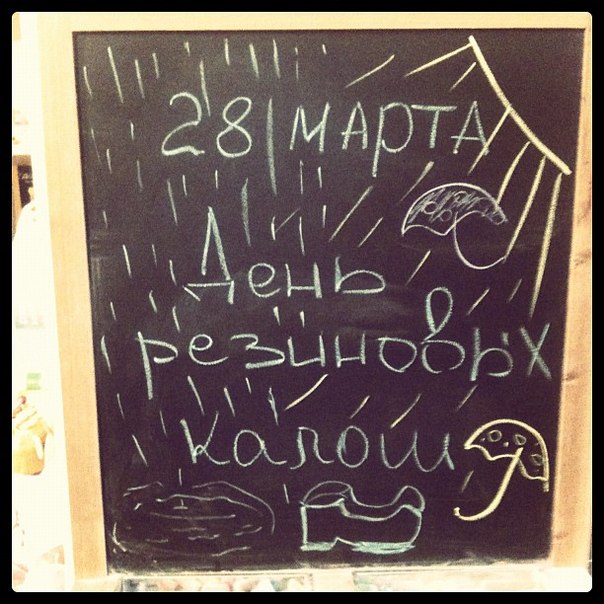 28 марта
День
резиновых
калош